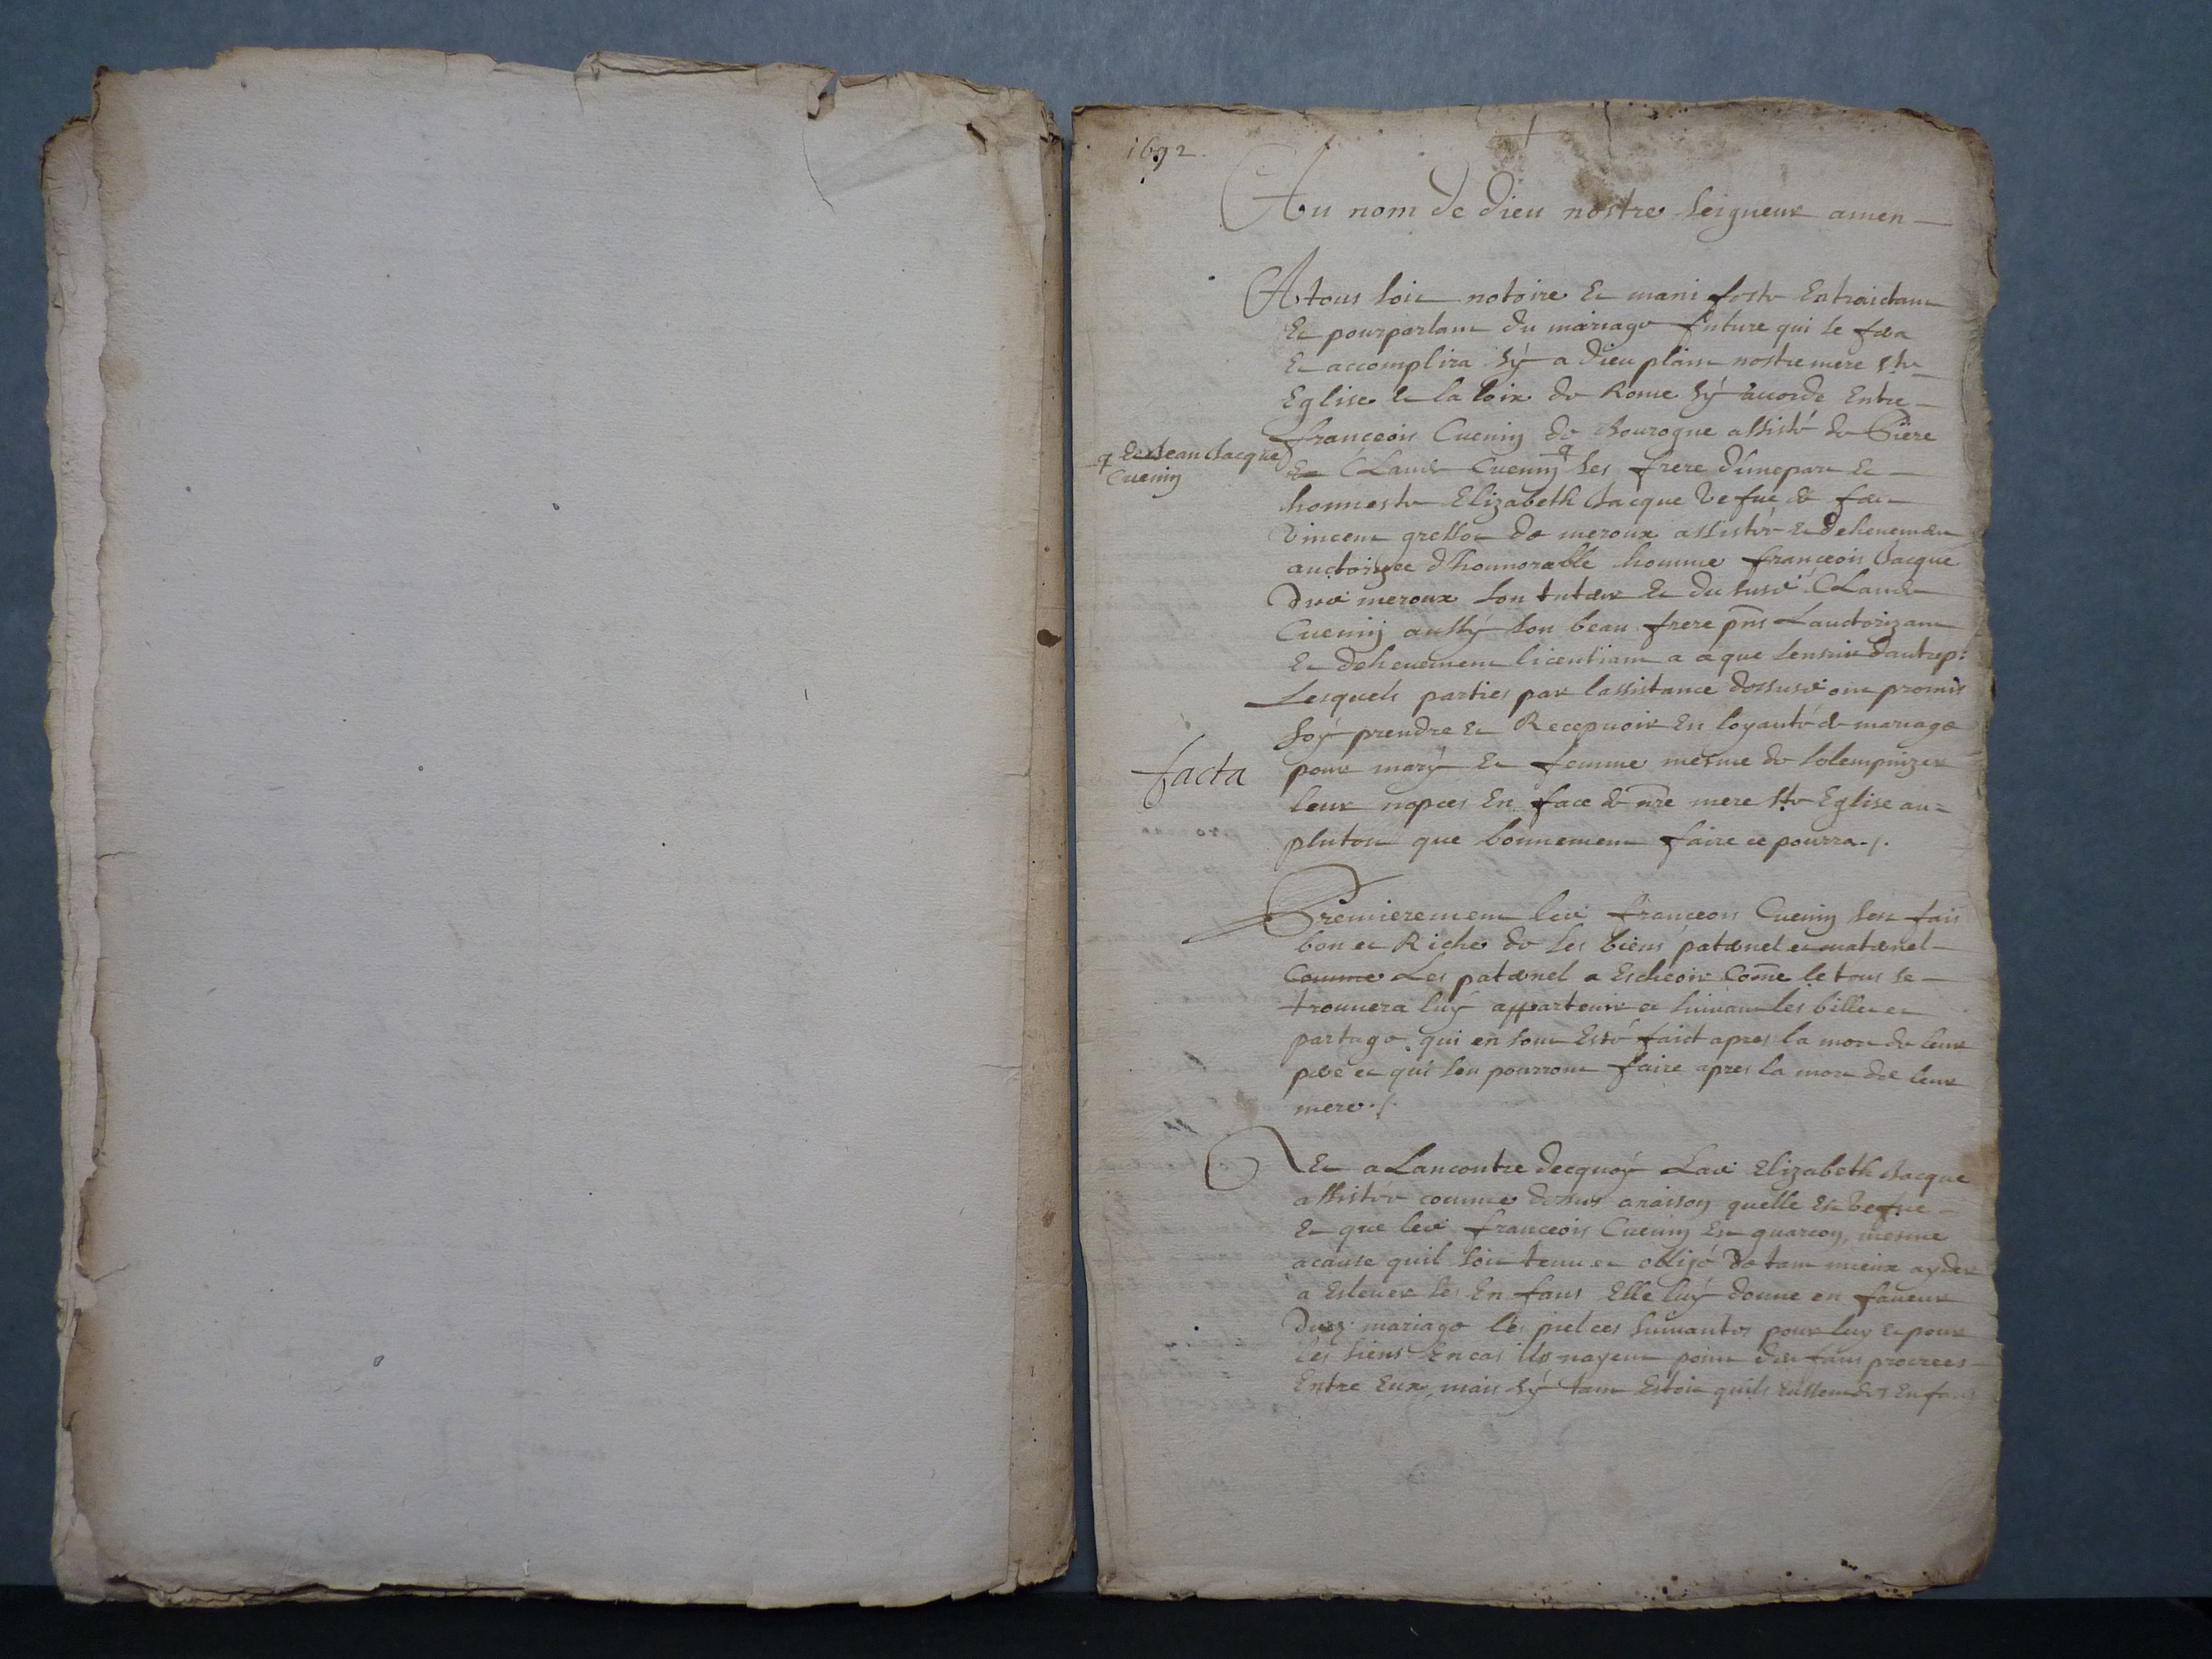 1692.
Au nom de Dieu nostre Seigneur amen
A tous soit notoire Et manifeste Entraictant
Et pourparlant du mariage future qui se fera
Et accomplira sÿ a Dieu plaist nostre mere ste
Eglise et la loix de Rome sÿ accorde Entre
franceois Cuenin de Bourogne assisté de Piere
Et Jean Jacque
Cuenin
Et Claude Cuenin ses frere d'une part Et
honneste Elizabeth Jacque Vefue de feu
Vincent gresso de meroux assistée Et dehuement
auctorizee d'honnorable homme franceois Jacque
dud meroux son tuteur Et du susd Claude
Cuenin aussÿ son beau frere pns Lauctorizant
Et dehuement licentiant a ce que sensuit dautre p:
Lesquels parties par lassistance dessusd ont promis
soÿ prendre Et Recepuoir En loyauté de mariage
facta
pour marÿ Et femme mesme de solempnizer
leur nopces En face de nre mere ste Eglise au=
plutost que bonnement faire ce pourra./.
Premierement led franceois Cuenin sest fait
bon et Riche de ses biens paternel et maternel
Comme Les paternel a Escheoir Come le tous se
trouuera luÿ appartenir et suiuant les billet et
partage qui en sont Esté faict apres la mort de leur
pere et qui sen pourront faire apres la mort de leur
mere./.
Et a Lancontre decquoÿ Lad Elizabeth Jacque
assistée comme dessus a raison quelle Est Vefue
Et que led franceois Cuenin Est guarcon, mesme
a cause quil soit tenu et obligé de tant mieux ayder
a Esleuer ses Enfans Elle luÿ donne en faueur
dud mariage les pieces suiuantes pour luy et pour
les siens En cas ils nayent point denfans procrees
Entre Eux, mais sÿ tant Estoit quils Eussent des Enfans